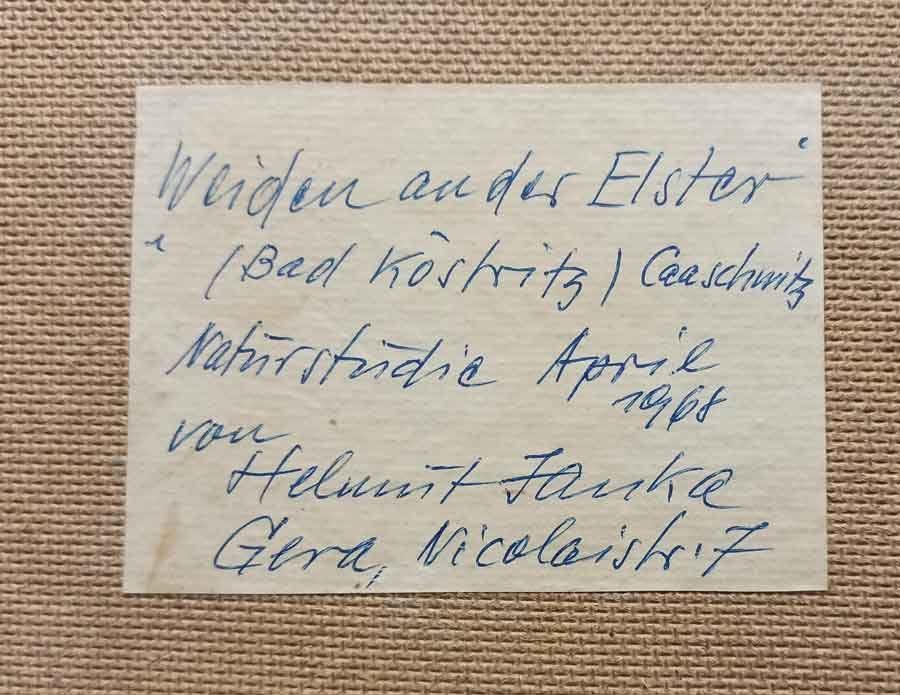 "Weiden an der Elster"
(Bad Köstritz) Caaschwitz
Naturstudie April
1968
von
Helmut Janka
Gera, Nicolaistr. 7